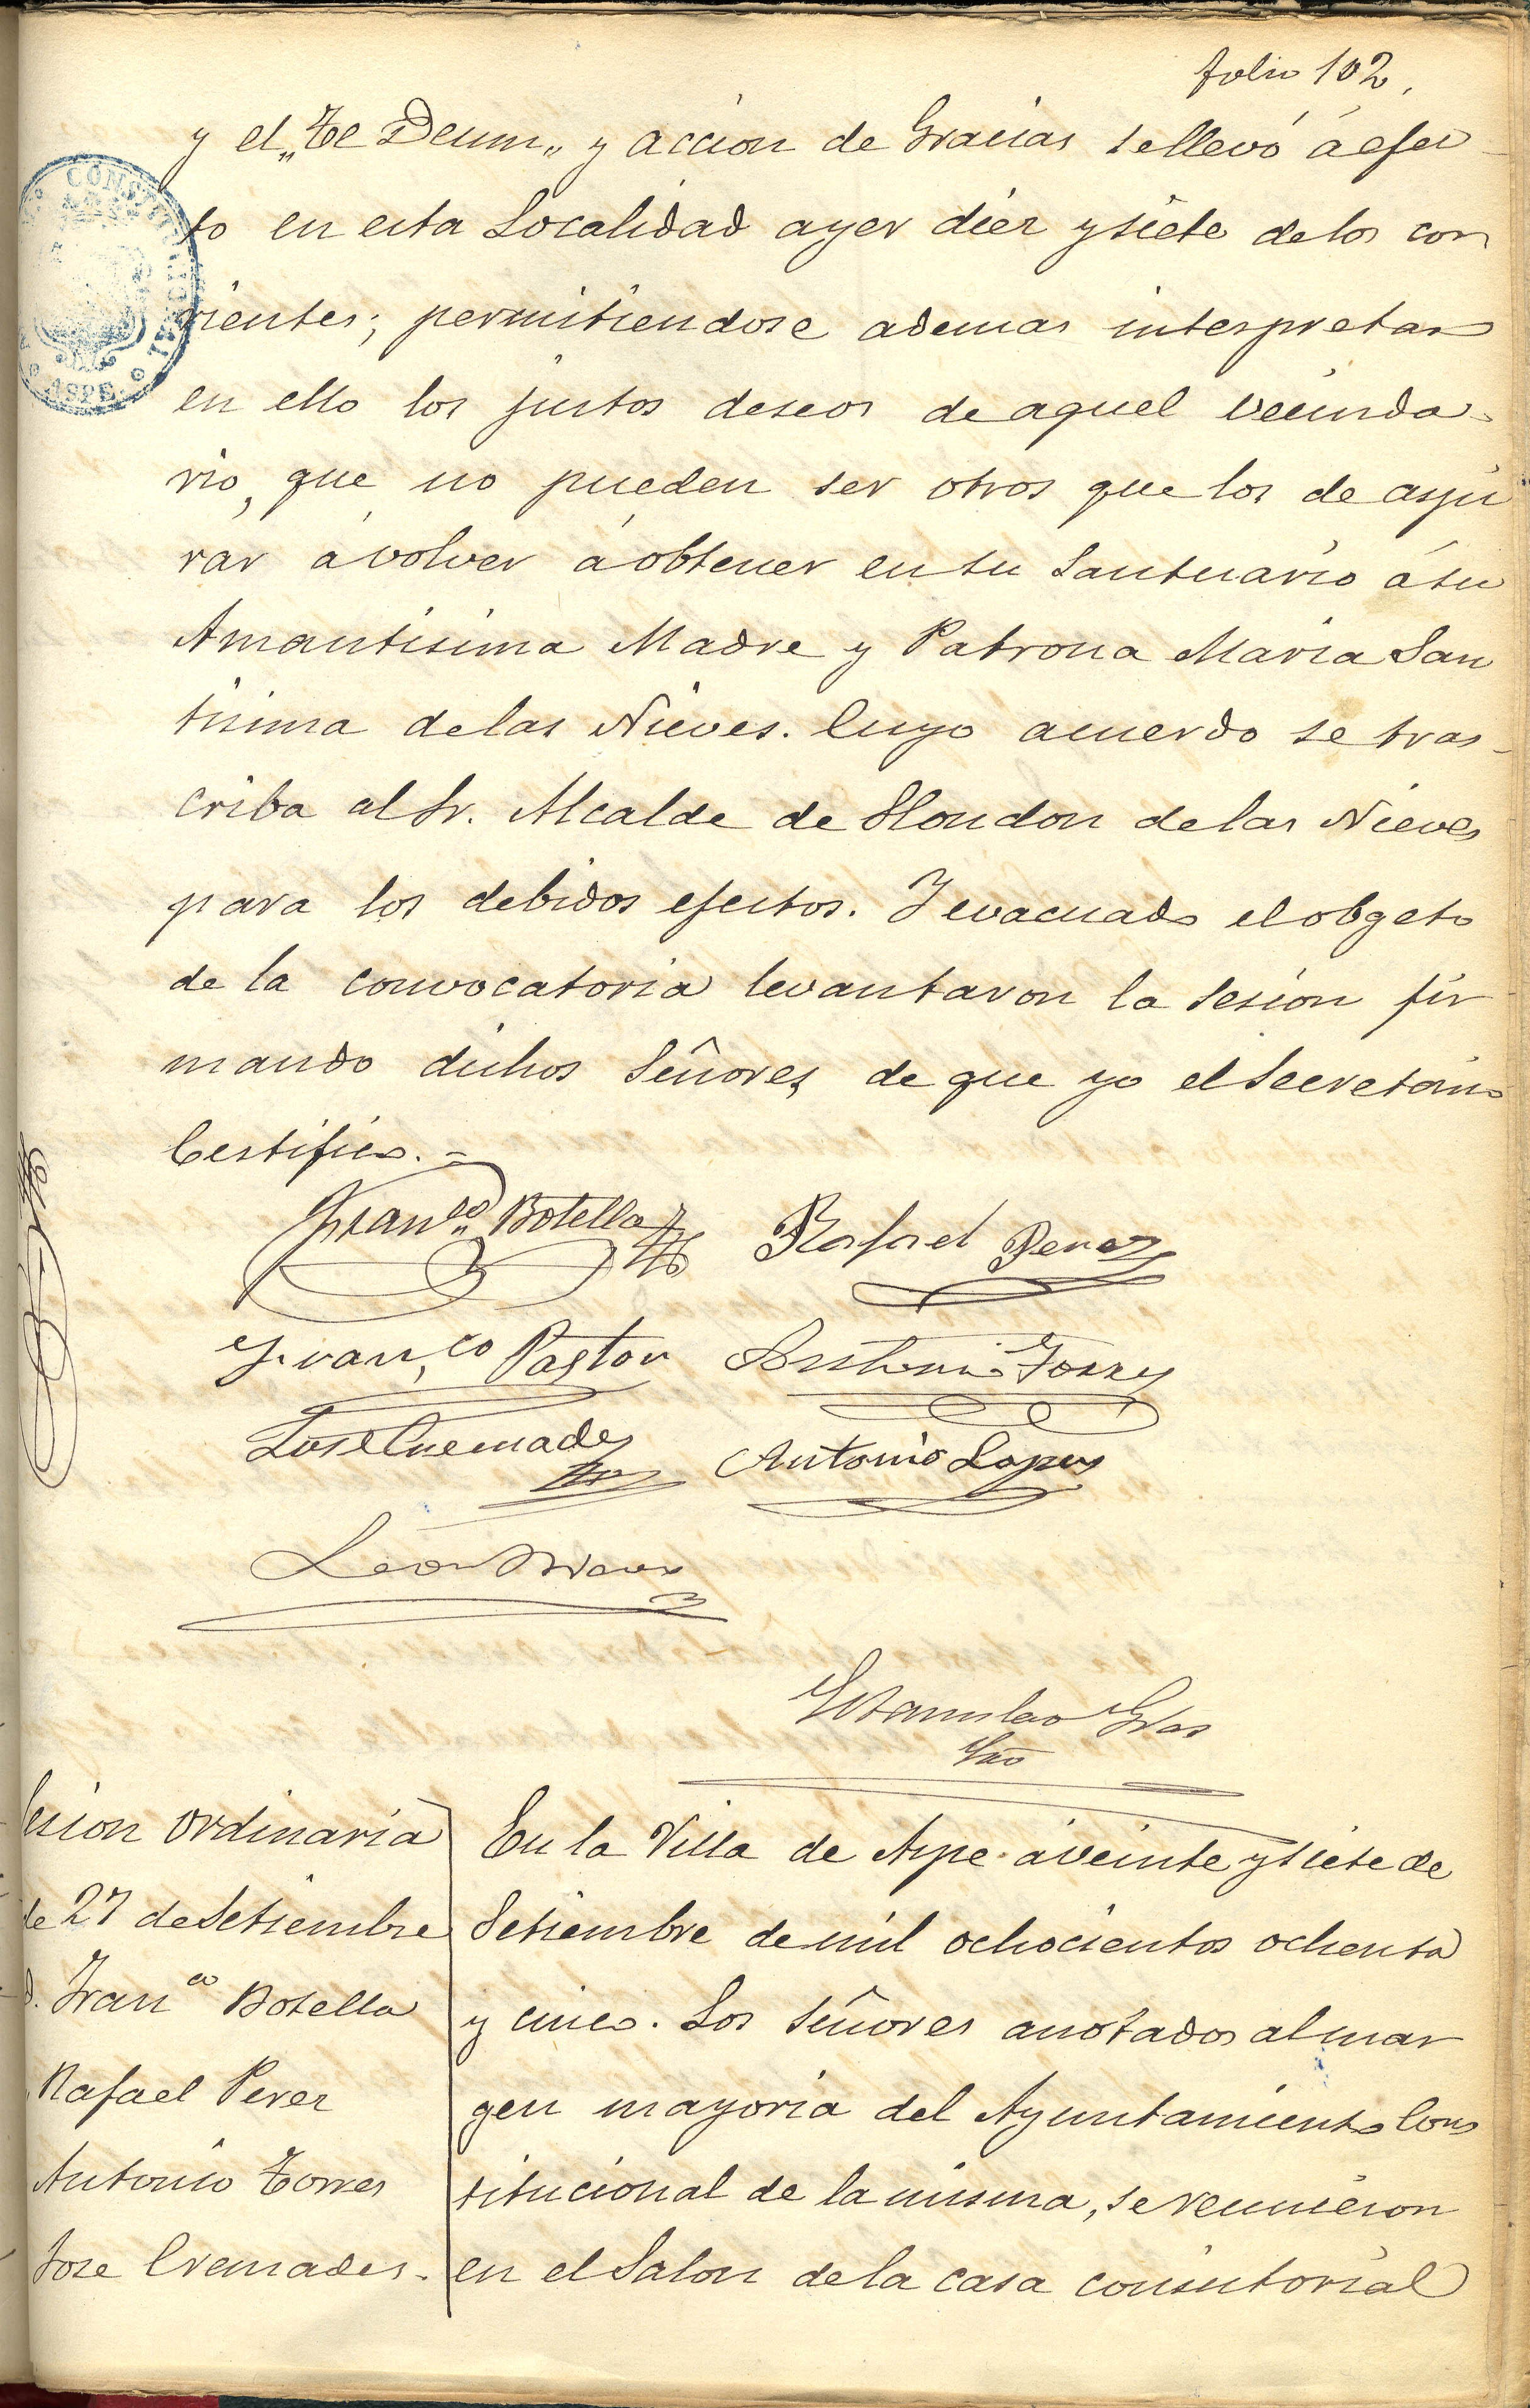 folio 102.
y el „Te Deum„ y accion de Gracias se llevó á efec-
to en esta Localidad ayer diez y siete de los cor
rientes; permitiendose ademas interpretar
en ello los justos deseos de aquel vecinda-
rio, que no pueden ser otros que los de aspi
rar á volver á obtener en su Santuario á su
Amantisima Madre y Patrona Maria San
tisima de las Nieves. Cuyo acuerdo se tras-
criba al Sr. Alcalde de Hondon de las Nieves
para los debidos efectos. Y evacuado el obgeto
de la convocatoria levantaron la sesion fir
mando dichos Señores, de que yo el Secretario
Certifico.=
CONSTITUCIONAL
ASPE
Franco Botella Rafael Perez
Franco Pastor Antonio Torres
Jose Cremades Antonio Lopez
Leon
Estanislao Gras
Srio
Sesion ordinaria
de 27 de Setiembre
D. Franco Botella
Rafael Perez
Antonio Torres
Jose Cremades.
En la Villa de Aspe á veinte y siete de
Setiembre de mil ochocientos ochenta
y cinco. Los Señores anotados al mar
gen mayoria del Ayuntamiento Cons
titucional de la misma, se reunieron
en el Salon de la casa consistorial